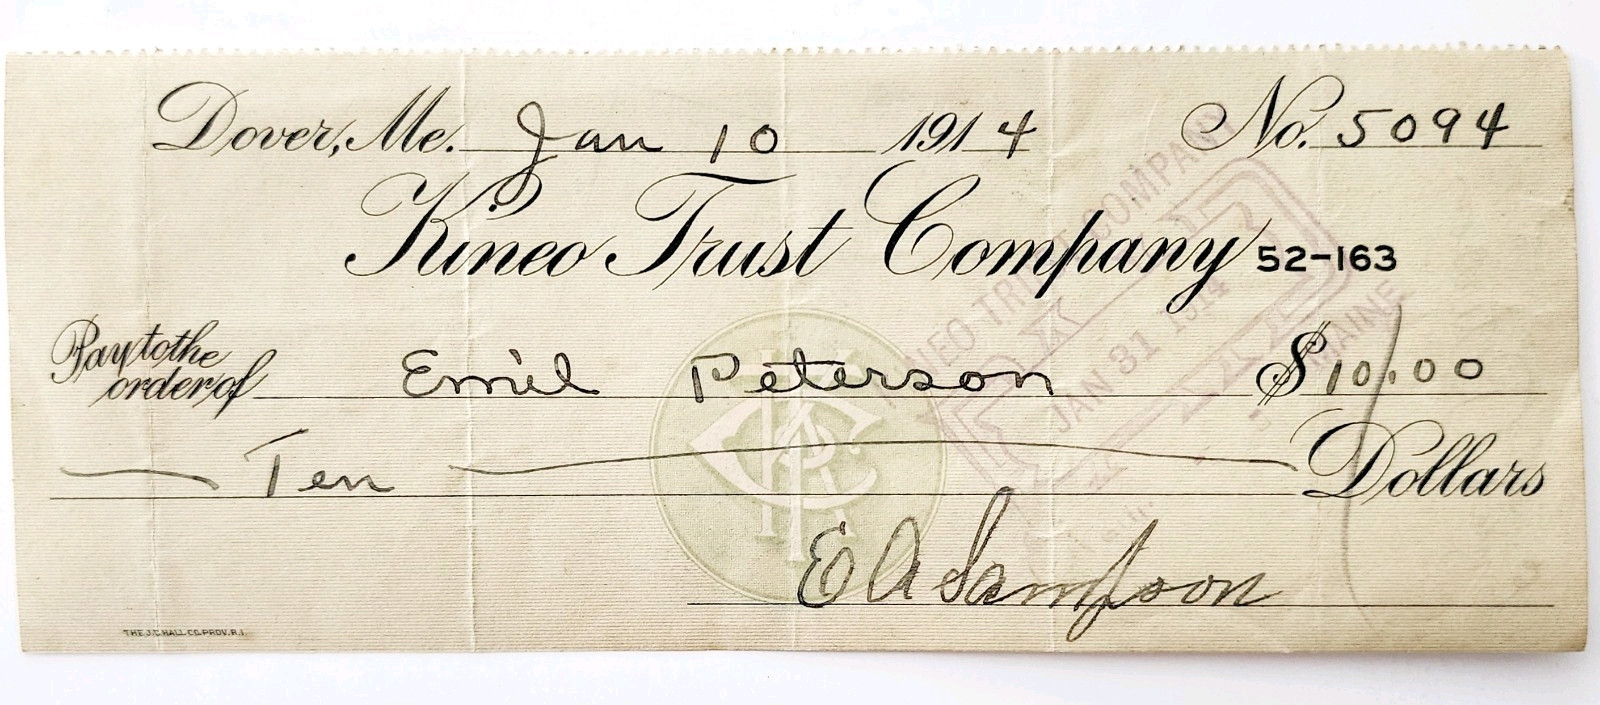 Dover, Me. Jan 10 1914 No. 5094
Kineo Trust Company 52-163
Pay to the order of Emil Peterson $10.00
Ten Dollars
E A Sampson
KINEO TRUST COMPANY
JAN 31 1914
MAINE
THE J.C. HALL CO. PROV. R.I.